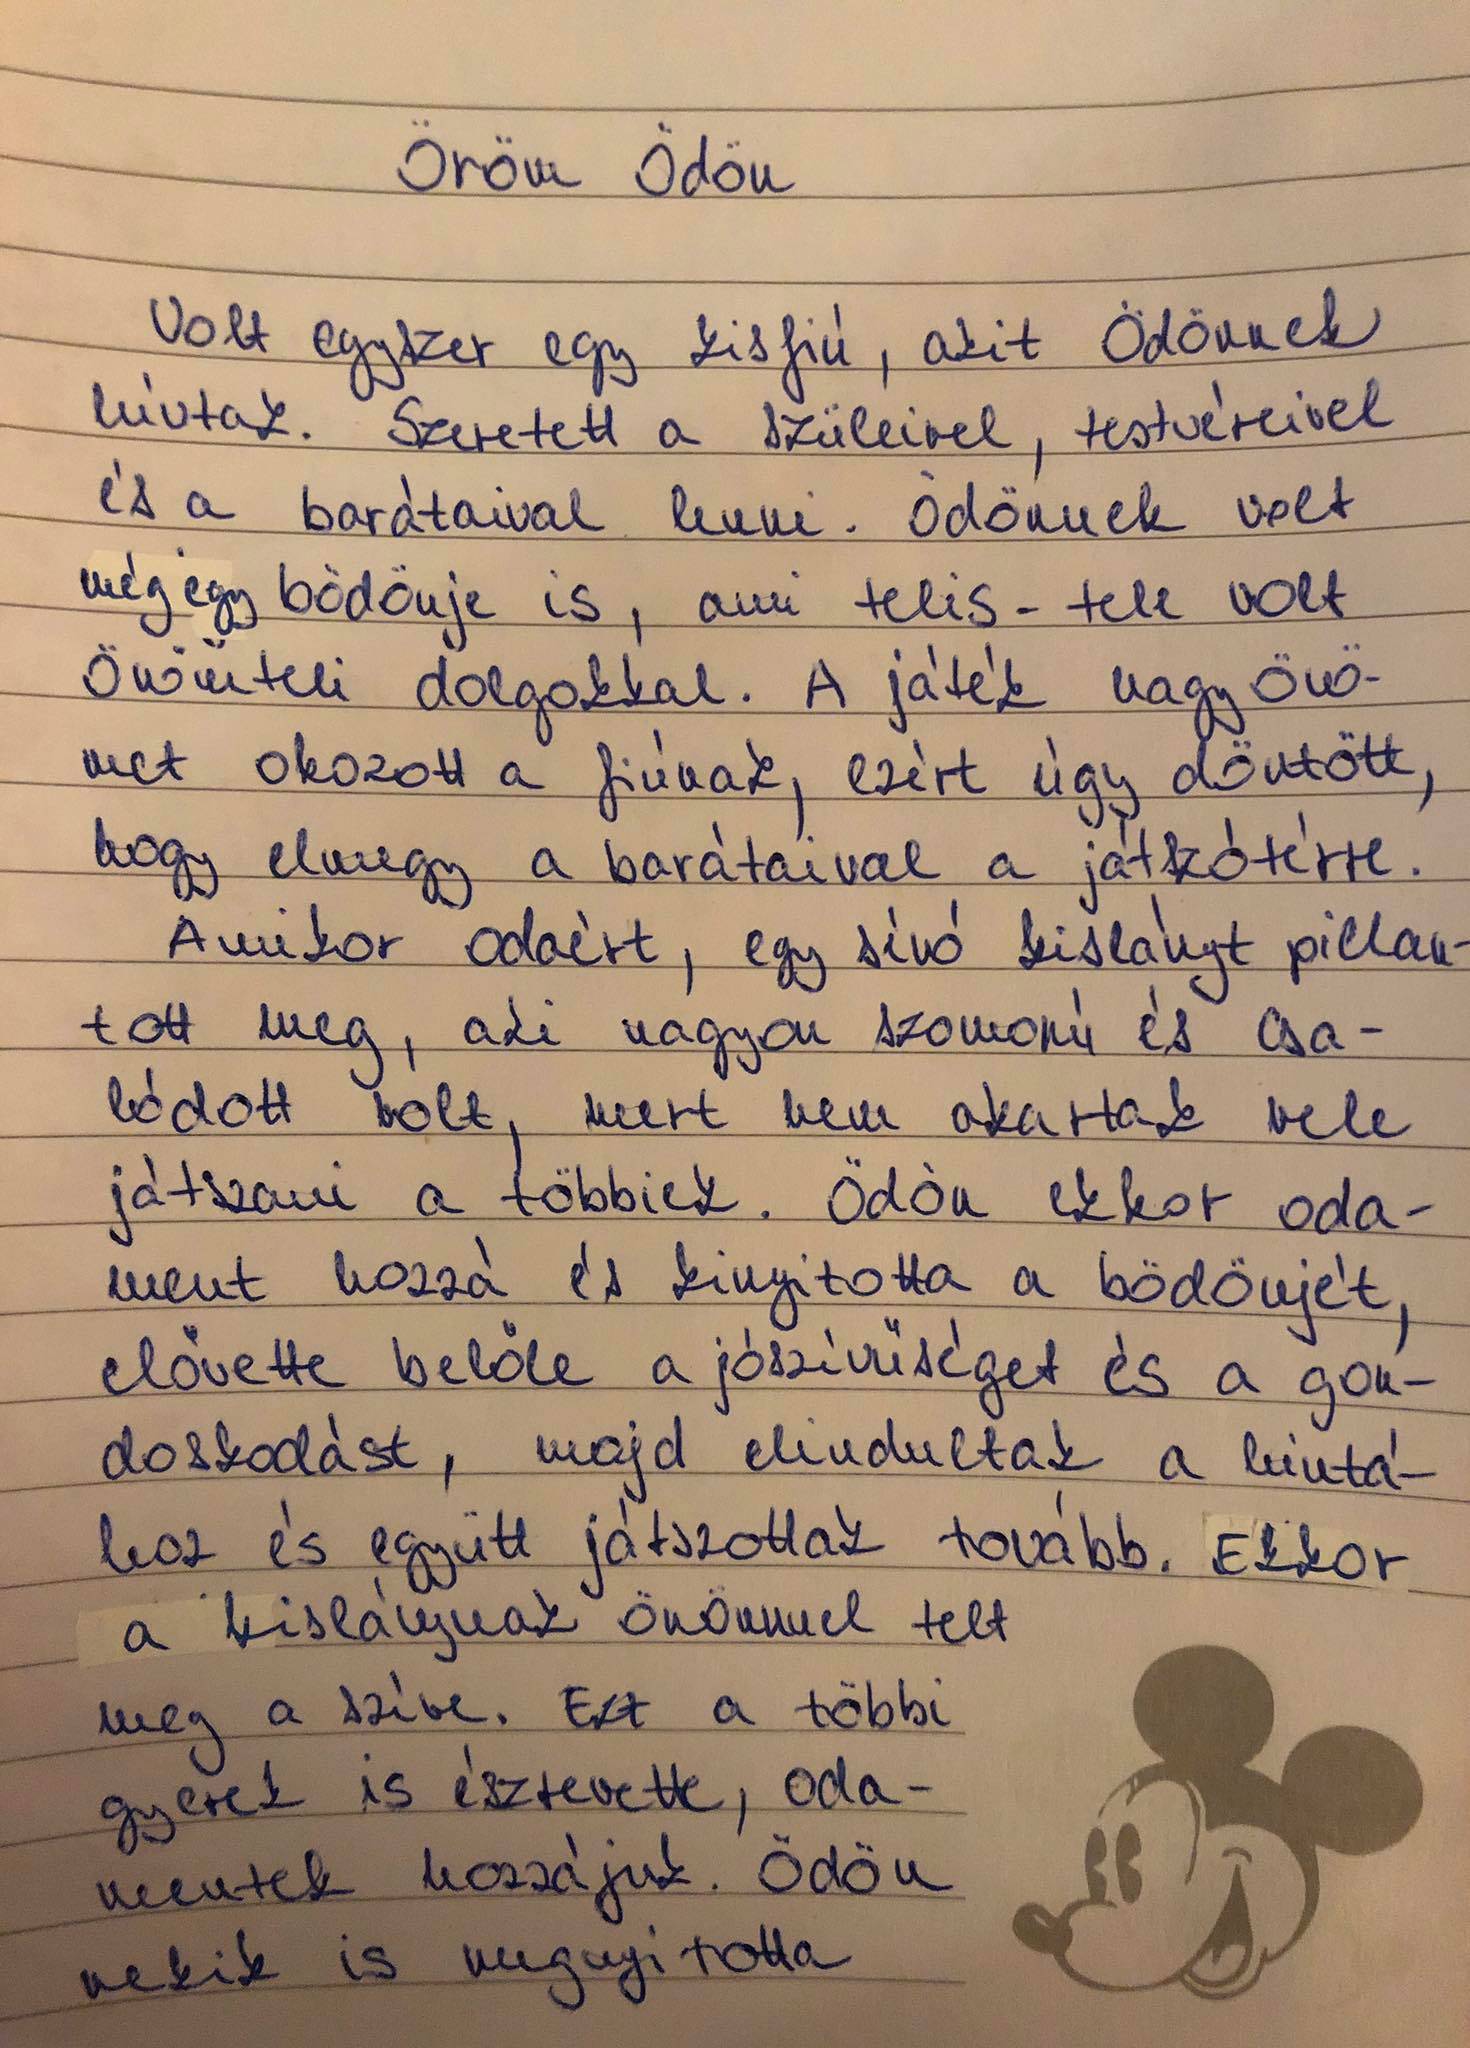 Öröm Ödön
Volt egyszer egy kisfiú, akit Ödönnek
hívtak. Szeretett a szüleivel, testvéreivel
és a barátaival lenni. Ödönnek volt
még egy bödönje is, ami telis-tele volt
örömteli dolgokkal. A játék nagy örö-
met okozott a fiúnak, ezért úgy döntött,
hogy elmegy a barátaival a játszótérre.
Amikor odaért, egy síró kislányt pillan-
tott meg, aki nagyon szomorú és csa-
lódott volt, mert nem akartak vele
játszani a többiek. Ödön ekkor oda-
ment hozzá és kinyitotta a bödönjét,
elővette belőle a jószívűséget és a gon-
doskodást, majd elindultak a hintá-
hoz és együtt játszottak tovább. Ekkor
a kislánynak örömmel telt
meg a szíve. Ezt a többi
gyerek is észrevette, oda-
mentek hozzájuk. Ödön
nekik is megnyitotta